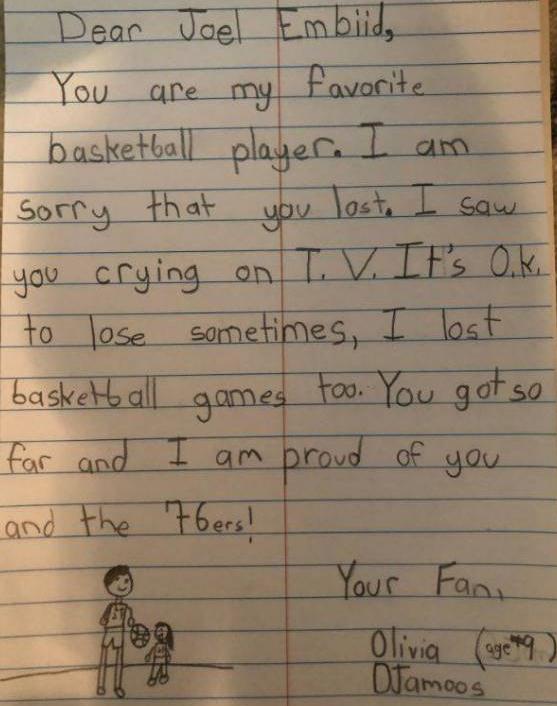 Dear Joel Embiid,
You are my favorite
basketball player. I am
sorry that you lost. I saw
you crying on T.V. It's O.k.
to lose sometimes, I lost
basketball games too. You got so
far and I am proud of you
and the 76ers!
Your Fan,
Olivia (age 9)
DJamoos